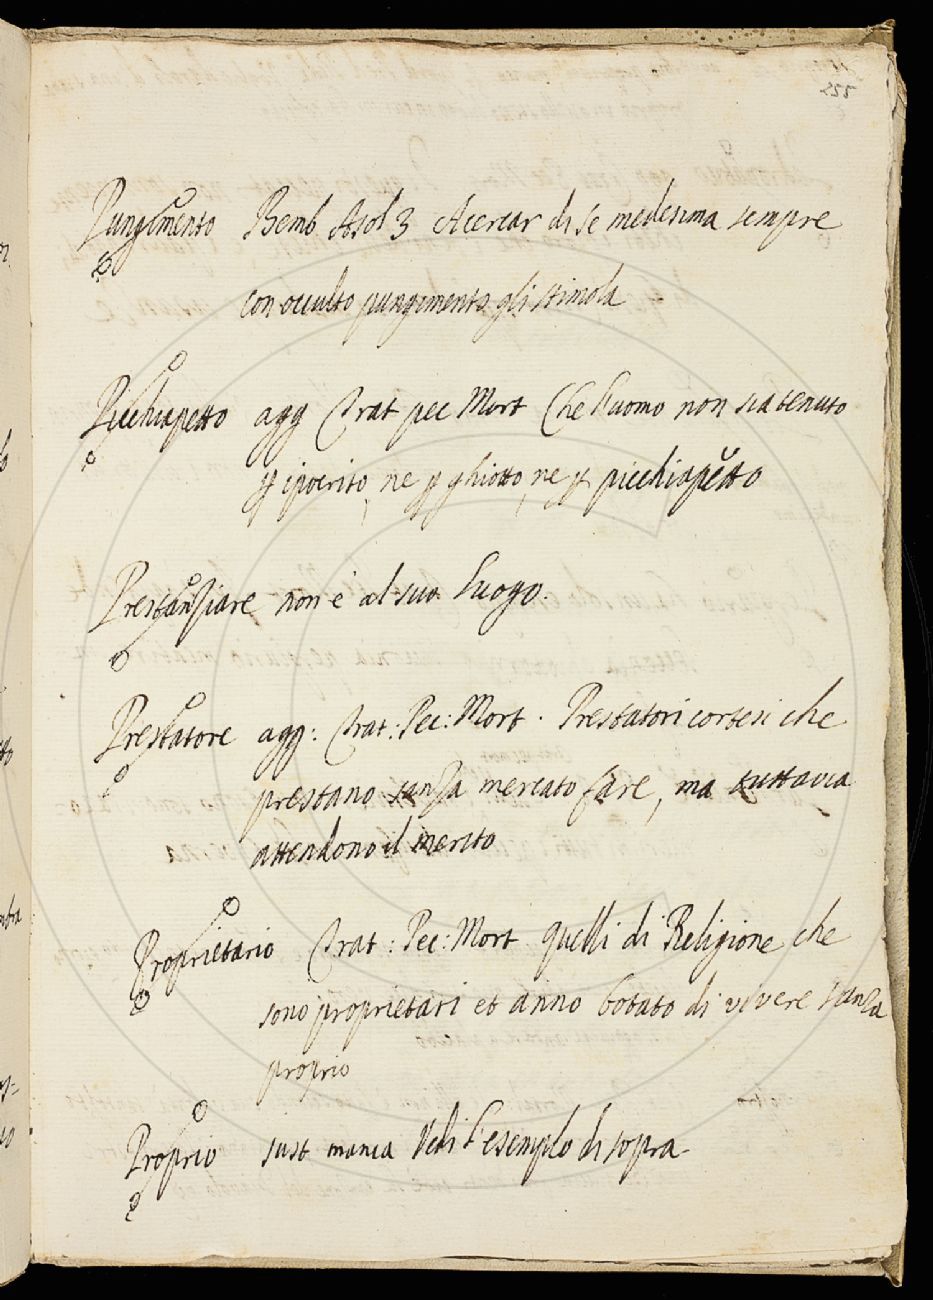 225
Pungimento Bemb Asol 3 A cercar di se medesima sempre
con occulto pungimento gli stimola
Picchiapetto agg Trat pec Mort Che l'uomo non sia tenuto
p ipocrito, ne p ghiotto, ne p picchiapetto
Prestanziare non è al suo luogo.
Prestatore agg: Trat: Pec: Mort. Prestatori cortesi che
prestano sanza mercato fare, ma tuttavia
attendono il merito
Proprietario Trat: Pec: Mort quelli di Religione che
sono proprietari et anno botato di vivere sanza
proprio
Proprio sust manca Vedi l'esemplo di sopra